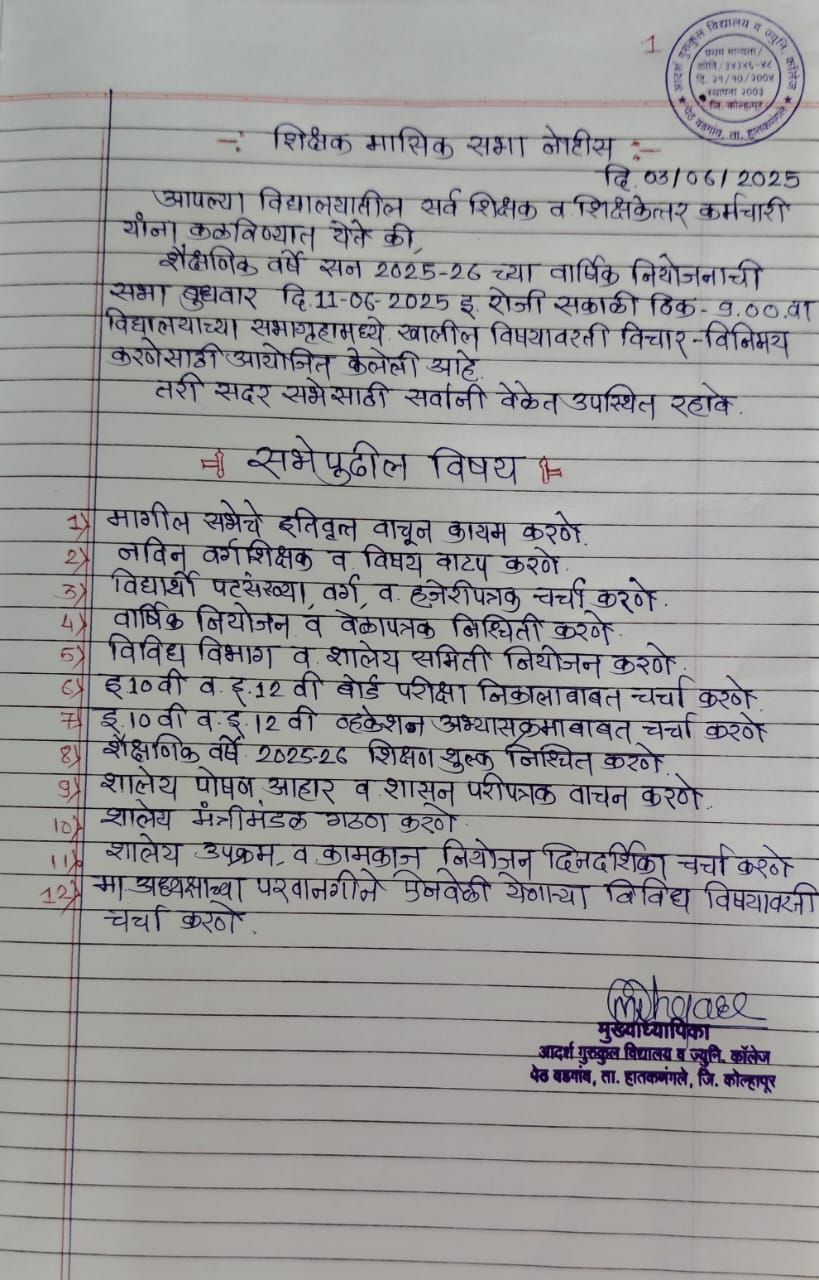 1
आदर्श गुरुकुल विद्यालय व ज्युनि. कॉलेज
प्रथम मान्यता/
दि. २१/१०/२००४
स्थापना २००३
जि. कोल्हापूर
पेठ वडगांव, ता. हातकणंगले
-: शिक्षक मासिक सभा नोटीस :-
दि. 03/06/2025
आपल्या विद्यालयातील सर्व शिक्षक व शिक्षकेत्तर कर्मचारी
यांना कळविण्यात येते की,
शैक्षणिक वर्षे सन 2025-26 च्या वार्षिक नियोजनाची
सभा बुधवार दि.11-06-2025 इ. रोजी सकाळी ठिक - 9.00.वा
विद्यालयाच्या सभागृहामध्ये खालील विषयावरती विचार-विनिमय
करणेसाठी आयोजित केलेली आहे.
तरी सदर सभेसाठी सर्वांनी वेळेत उपस्थित रहावे.
सभेपूढील विषय
1) मागील सभेचे इतिवृत्त वाचून कायम करणे.
2) नविन वर्गशिक्षक व विषय वाटप करणे.
3) विद्यार्थी पटसंख्या, वर्ग, व हजेरीपत्रक चर्चा करणे.
4) वार्षिक नियोजन व वेळापत्रक निश्चिती करणे.
5) विविध विभाग व शालेय समिती नियोजन करणे.
6) इ10वी व.इ.12 वी बोर्ड परीक्षा निकालाबाबत चर्चा करणे.
7) इ.10 वी व.इ.12 वी व्हकेशन अभ्यासक्रमाबाबत चर्चा करणे
8) शैक्षणिक वर्षे 2025-26 शिक्षण शुल्क निश्चित करणे.
9) शालेय पोषण आहार व शासन परीपत्रक वाचन करणे.
10) शालेय मंत्रीमंडळ गठण करणे.
11) शालेय उपक्रम, व कामकाज नियोजन दिनदर्शिका चर्चा करणे
12) मा.अध्यक्षाच्या परवानगीने ऐनवेळी येणाऱ्या विविध विषयावरती
चर्चा करणे.
मुख्याध्यापिका
आदर्श गुरुकुल विद्यालय व ज्युनि. कॉलेज
पेठ वडगांव, ता. हातकणंगले, जि. कोल्हापूर